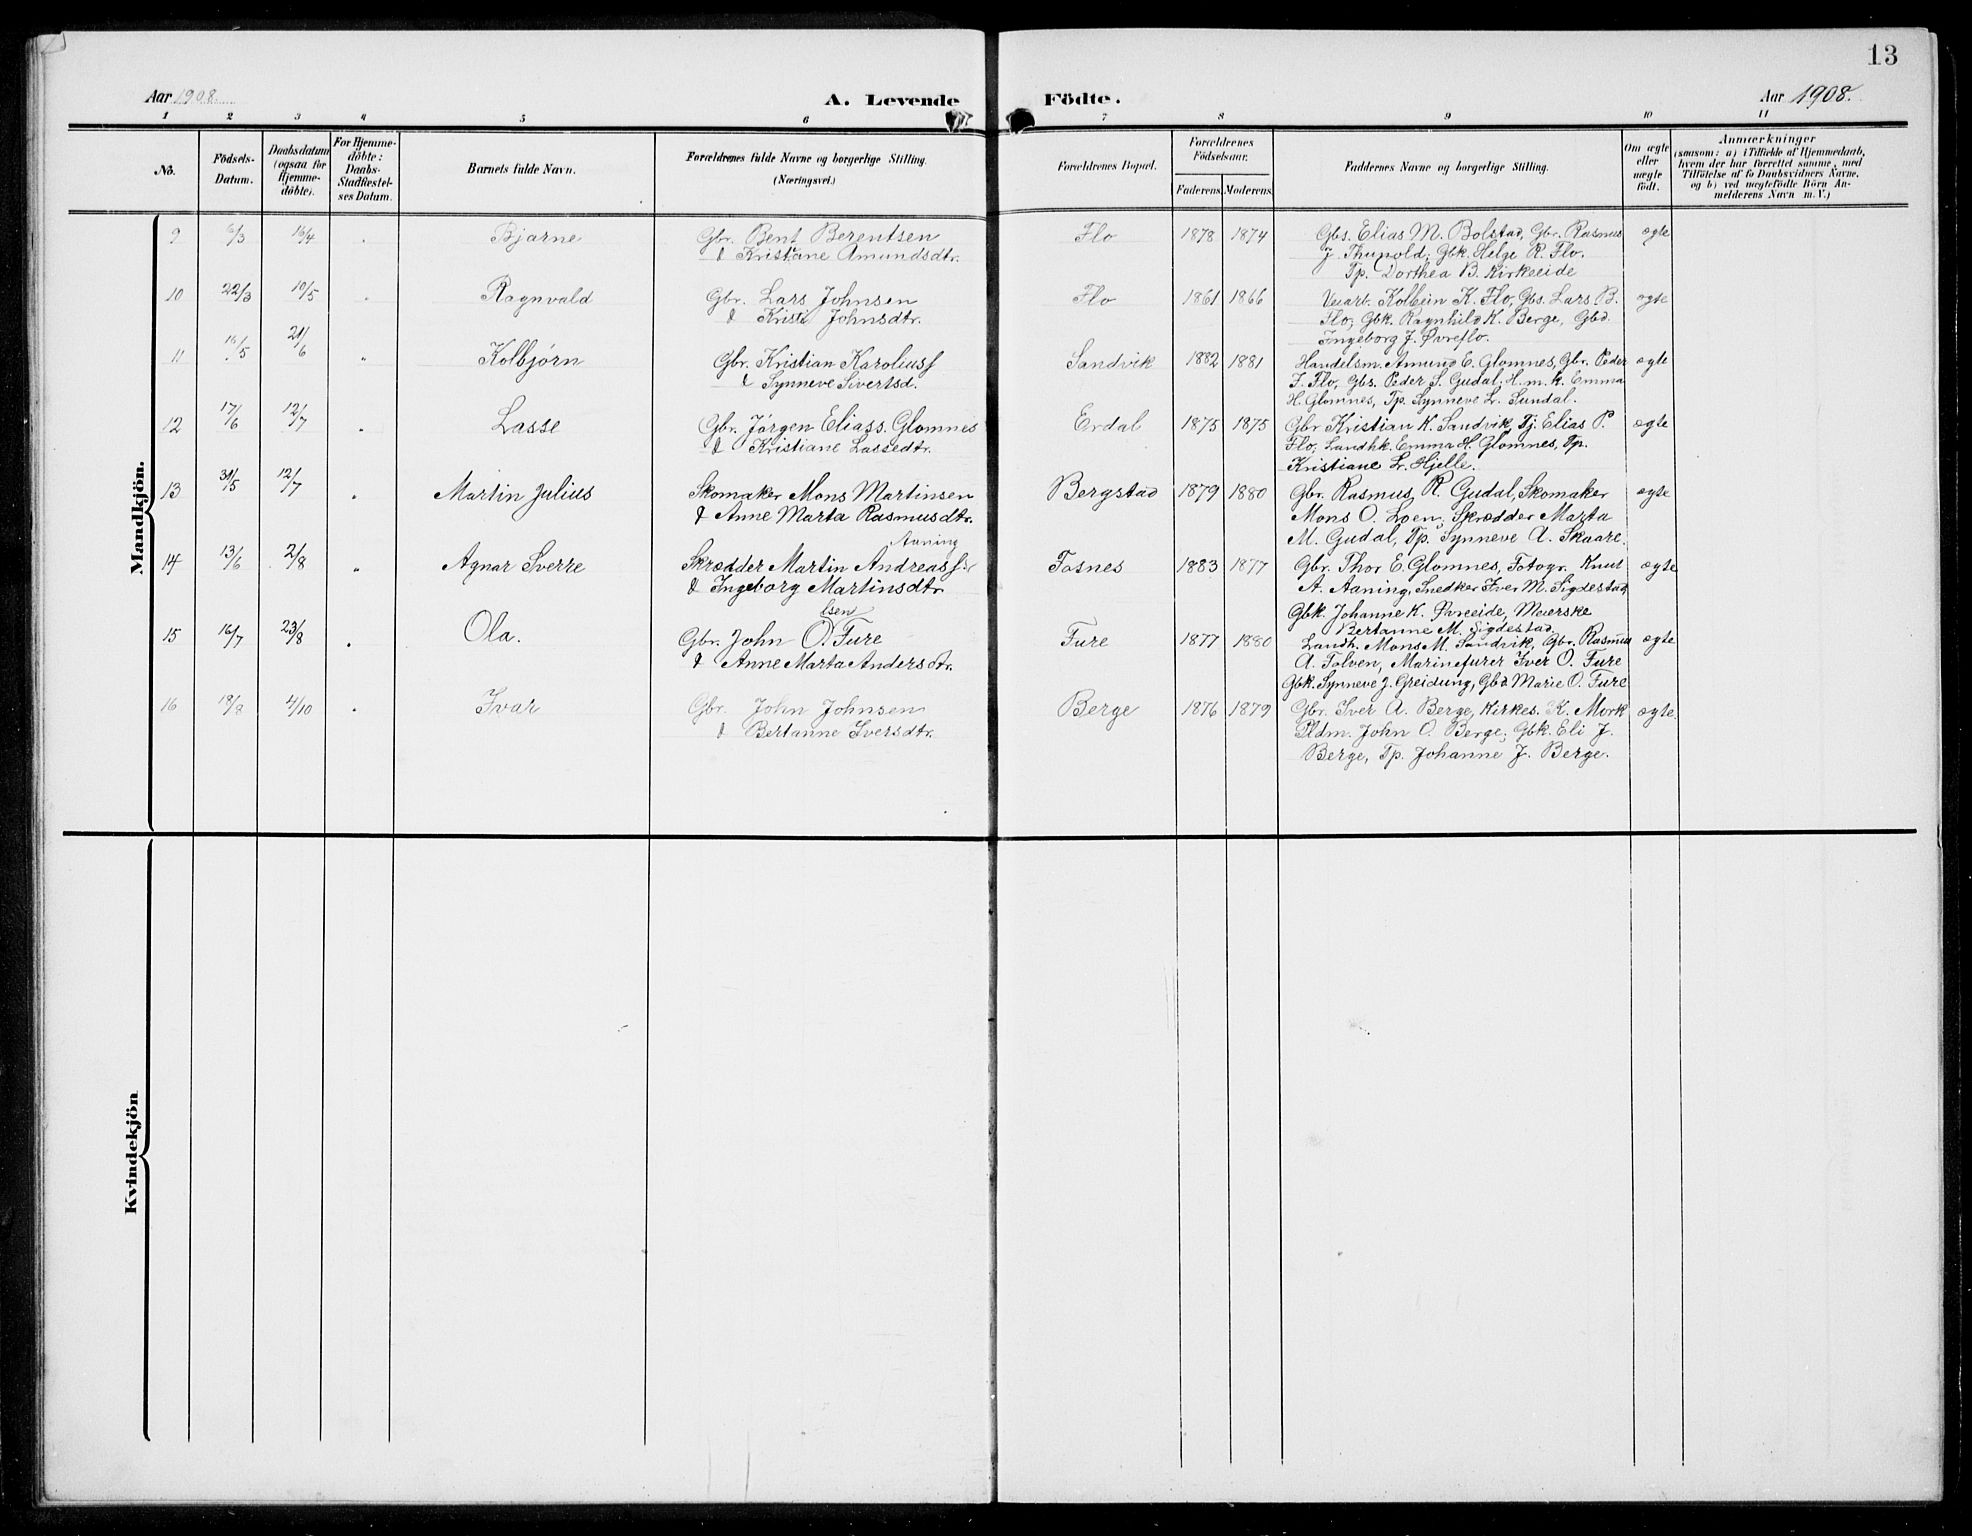 13
Aar 1908.
A. Levende Födte.
Aar 1908.
1 2 3 4 5 6 7 8 9 10 11
No.
Födsels-
Datum.
Daabsdatum
(ogsaa for
Hjemme-
döbte).
For Hjemme-
döbte:
Daabs-
Stadfæstel-
ses Datum.
Barnets fulde Navn.
Forældrenes fulde Navne og borgerlige Stilling.
(Næringsvei.)
Forældrenes Bopæl.
Forældrenes
Födselsaar.
Faderens. Moderens.
Faddernes Navne og borgerlige Stilling.
Om ægte
eller
uægte
födt.
Anmærkninger
(saasom: a) i Tilfælde af Hjemmedaab,
hvem der har forrettet samme, med
Tilföielse af to Daabsvidners Navne,
og b) ved uægtefödte Börn An-
melderens Navn m. V.)
Mandkjön.
9 6/3 16/4 " Bjarne Gbr. Bent Berentsen Flo 1878 1874 Gbs. Elias M. Bolstad, Gbr. Rasmus ægte
& Kristiane Amundsdtr. J. Thunold; Gbk. Helge R. Flo.
Tp. Dorthea B. Kirkeeide
10 22/3 10/5 " Ragnvald Gbr. Lars Johnsen Flo 1861 1866 Veiarb. Kolbein K. Flo, Gbs. Lars B. ægte
& Kristi Johnsdtr. Flo; Gbk. Ragnhild K. Berge, Gbd.
Ingeborg J. Øvreflo.
11 16/5 21/6 " Kolbjørn Gbr. Kristian Karoliuss Sandvik 1882 1881 Handelsm. Amund E. Glomnes, Gbr. Peder ægte
& Synneve Sivertsd. J. Flo, Gbs. Peder S. Gudal; H. m. k. Emma
H. Glomnes, Tp. Synneve L. Sundal.
12 17/6 12/7 " Lasse Gbr. Jørgen Eliass. Glomnes Erdal 1875 1875 Gbr Kristian K. Sandvik, Tj. Elias P. ægte
& Kristiane Lassedtr. Flo; Landhk. Emma H. Glomnes, Tp.
Kristiane L. Hjelle.
13 31/5 12/7 " Martin Julius Skomaker Mons Martinsen Bergstad 1879 1880 Gbr. Rasmus R. Gudal, Skomaker ægte
& Anne Marta Rasmusdtr. Mons O. Loen; Skrædder Marta
M. Gudal, Tp. Synneve A. Skaare.
Aaning
14 13/6 2/8 " Agnar Sverre Skrædder Martin Andreass Fosnes 1883 1877 Gbr. Thor E. Glomnes, Fotogr. Knut ægte
& Ingeborg Martinsdtr. A. Aaning, Snedker Iver M. Sigdestad
Gbk. Johanne K. Øvreeide, Meierske
Bertanne M. Sigdestad.
lsen
15 16/7 23/8 " Ola. Gbr. John O. Fure Fure 1877 1880 Landh. Mons M. Sandvik, Gbr. Rasmus ægte
& Anne Marta Andersdtr. A. Tolven, Marinefurer Iver O. Fure
Gbk. Synneve J. Greidung, Gbd. Marie O. Fure
16 19/8 4/10 " Ivar Gbr. John Johnsen Berge 1876 1879 Gbr. Iver A. Berge, Kirkes. K. Mork ægte
& Bertanne Iversdtr. Pldm. John O. Berge; Gbk. Eli J.
Berge, Tp. Johanne J. Berge.
Kvindekjön